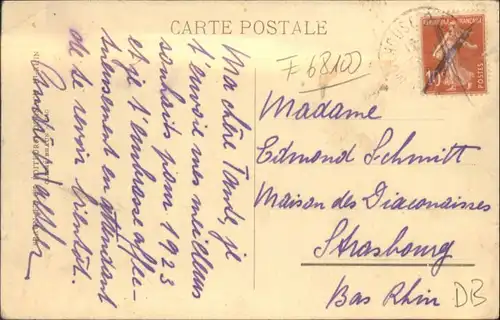 CARTE POSTALE
F 68100
Ma chère Tante, je
t'envoie mes meilleurs
souhaits pour 1923
et je t'embrasse affec-
tueusement en attendant
de te revoir bientôt.
Madame
Edmond Schmitt
Maison des Diaconaisses
Strasbourg
Bas Rhin
DB
10
POSTES